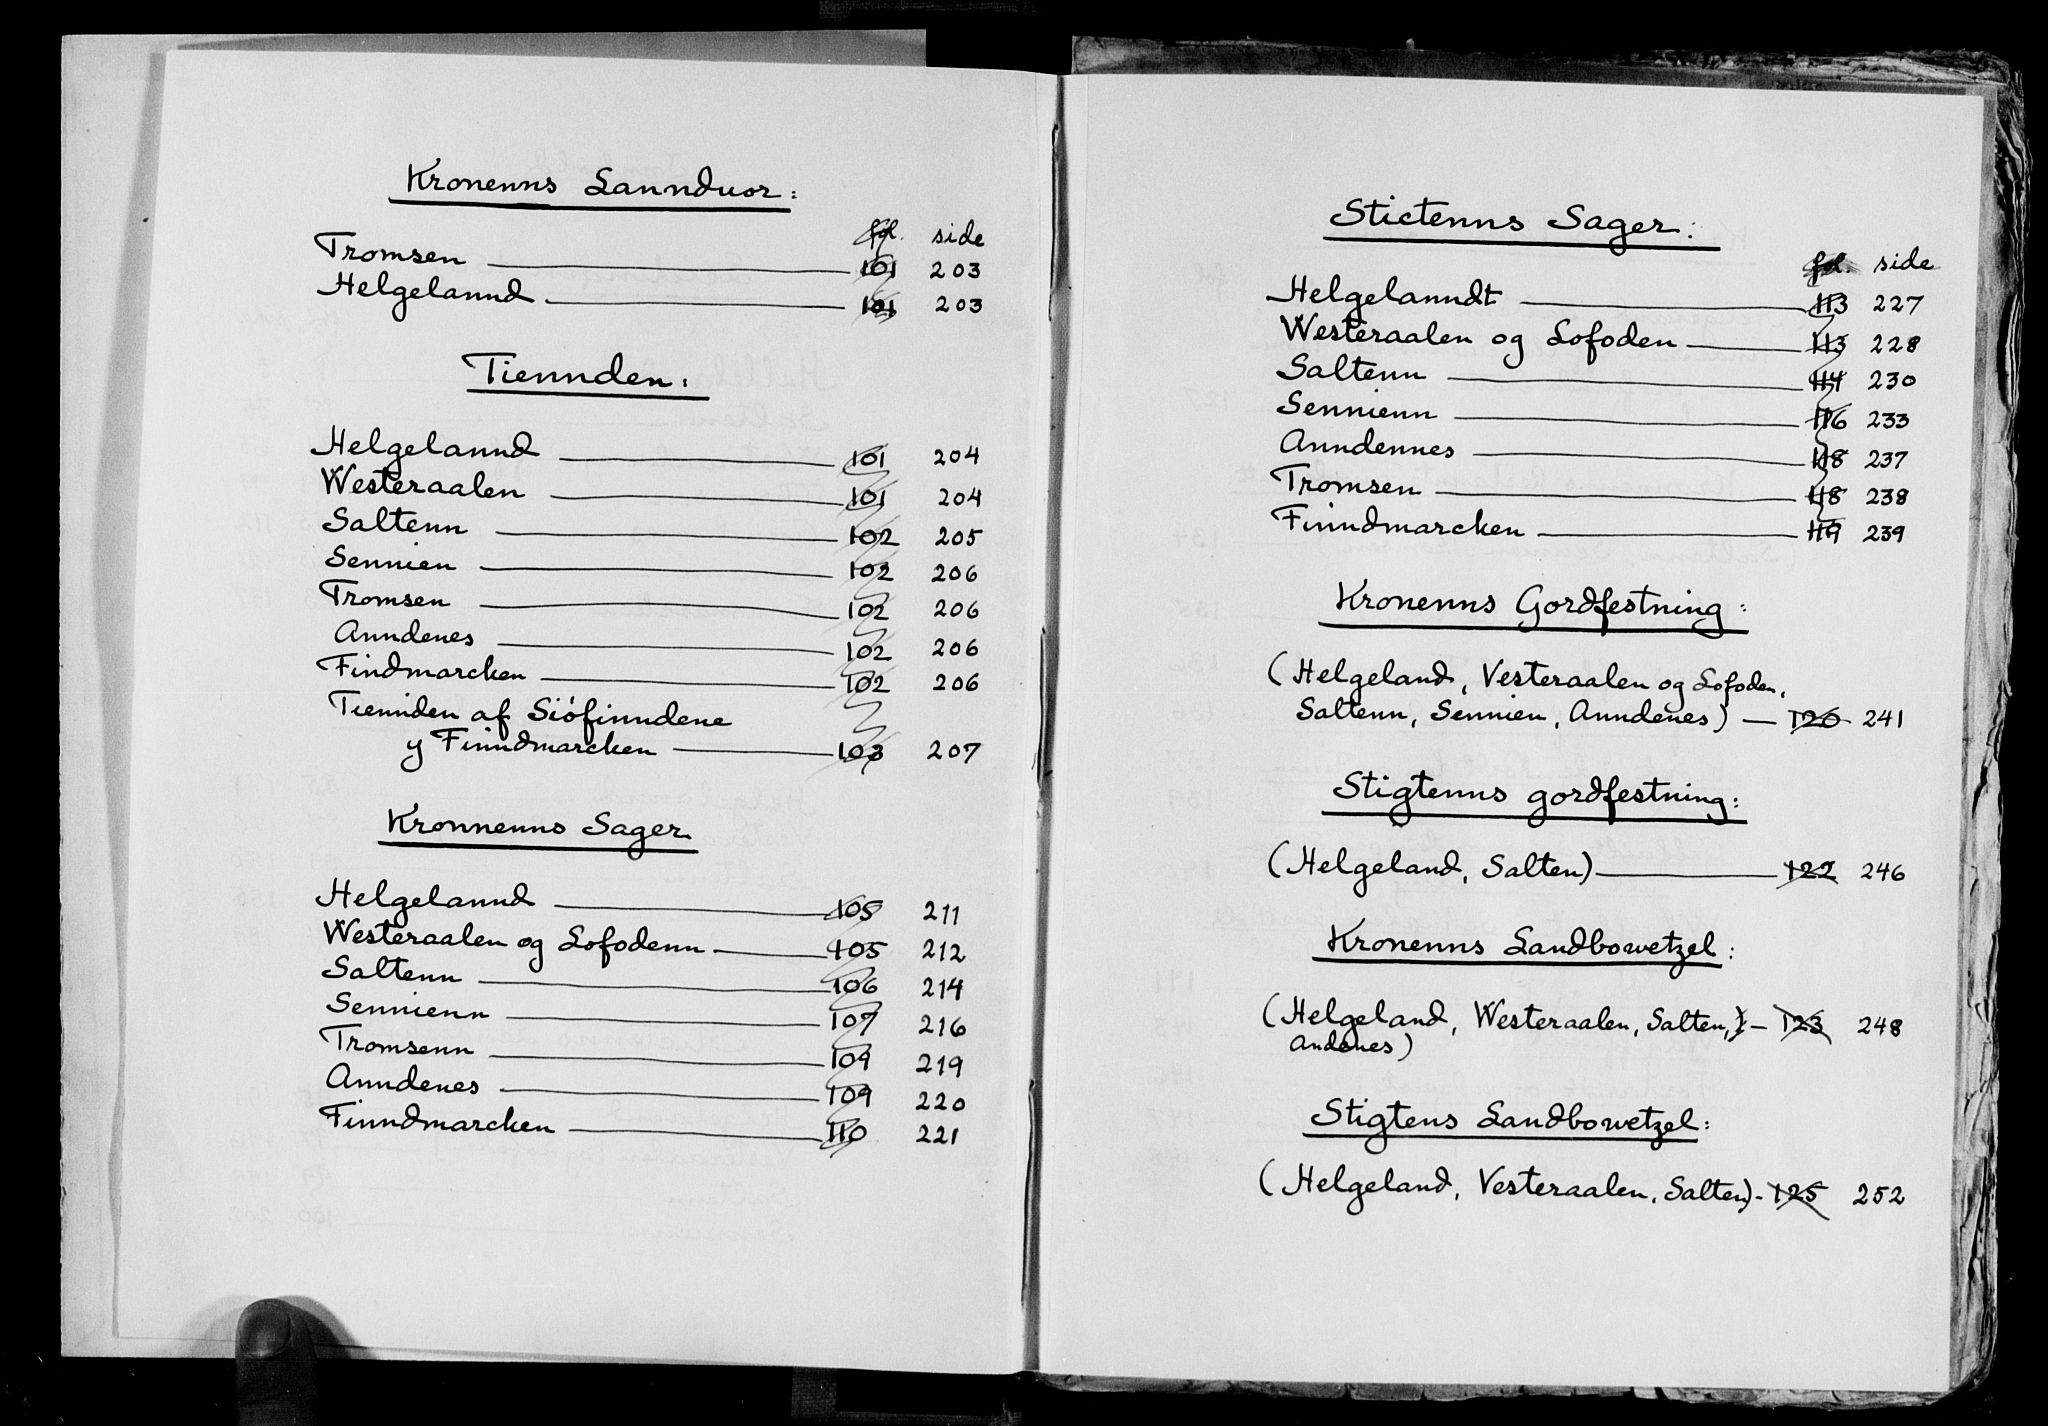 Kronenns Lannduor:
fol. side
Tromsen 101 203
Helgelannd 101 203
Tiennden:
Helgelannd 101 204
Westeraalen 101 204
Saltenn 102 205
Sennien 102 206
Tromsen 102 206
Anndenes 102 206
Findmarcken 102 206
Tiennden af Siöfinndene
y Finndmarcken 103 207
Kronnenns Sager
Helgelannd 105 211
Westeraalen og Lofodenn 105 212
Saltenn 106 214
Sennienn 107 216
Tromsenn 109 219
Anndenes 109 220
Finndmarcken 110 221
Stictenns Sager:
fol. side
Helgelanndt 113 227
Westeraalen og Lofoden 113 228
Saltenn 114 230
Sennienn 116 233
Anndennes 118 237
Tromsen 118 238
Finndmarcken 119 239
Kronenns Gordfestning:
(Helgeland, Vesteraalen og Lofoden,
Saltenn, Sennien, Anndenes) — 120 241
Stigtenns gordfestning:
(Helgeland, Salten) 122 246
Kronenns Landbowetzel:
(Helgeland, Westeraalen, Salten,) — 123 248
Andenes)
Stigtens Landbowetzel:
(Helgeland, Vesteraalen, Salten) - 125 252